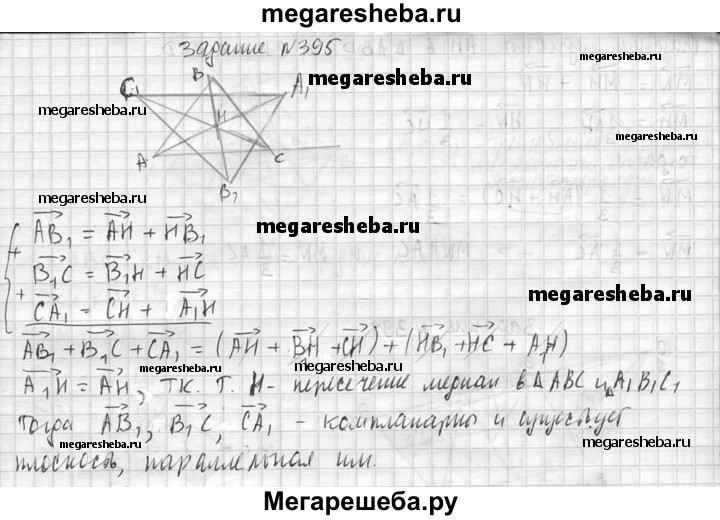 megaresheba.ru
Задание №395
B
C₁
A₁
H
A
C
B₁
megaresheba.ru
megaresheba.ru
megaresheba.ru
megaresheba.ru
megaresheba.ru
megaresheba.ru
megaresheba.ru
AB₁ = AH + HB₁
+
B₁C = B₁H + HC
+
CA₁ = CH + A₁H
AB₁ + B₁C + CA₁ = (AH + BH + CH) + (HB₁ + HC + A₁H)
A₁H = AH, т.к. т. H - пересечение медиан в ΔABC и ΔA₁B₁C₁
Тогда AB₁, B₁C, CA₁ - компланарны и существует
плоскость, параллельная им.
megaresheba.ru
megaresheba.ru
megaresheba.ru
Мегарешеба.ру